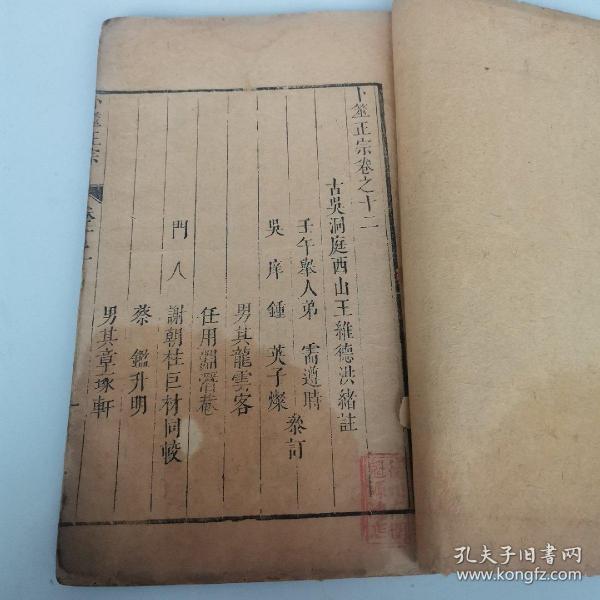 卜筮正宗卷之十二
古吳洞庭西山王維德洪緒註
壬午舉人弟 需遵時
吳庠鍾 英子燦 叅訂
男其龍雲客
任用淵潛菴
門人 謝朝柱巨材同較
蔡鑑升明
男其章琢軒
卜筮正宗
孔夫子旧书网
www.kongfz.com